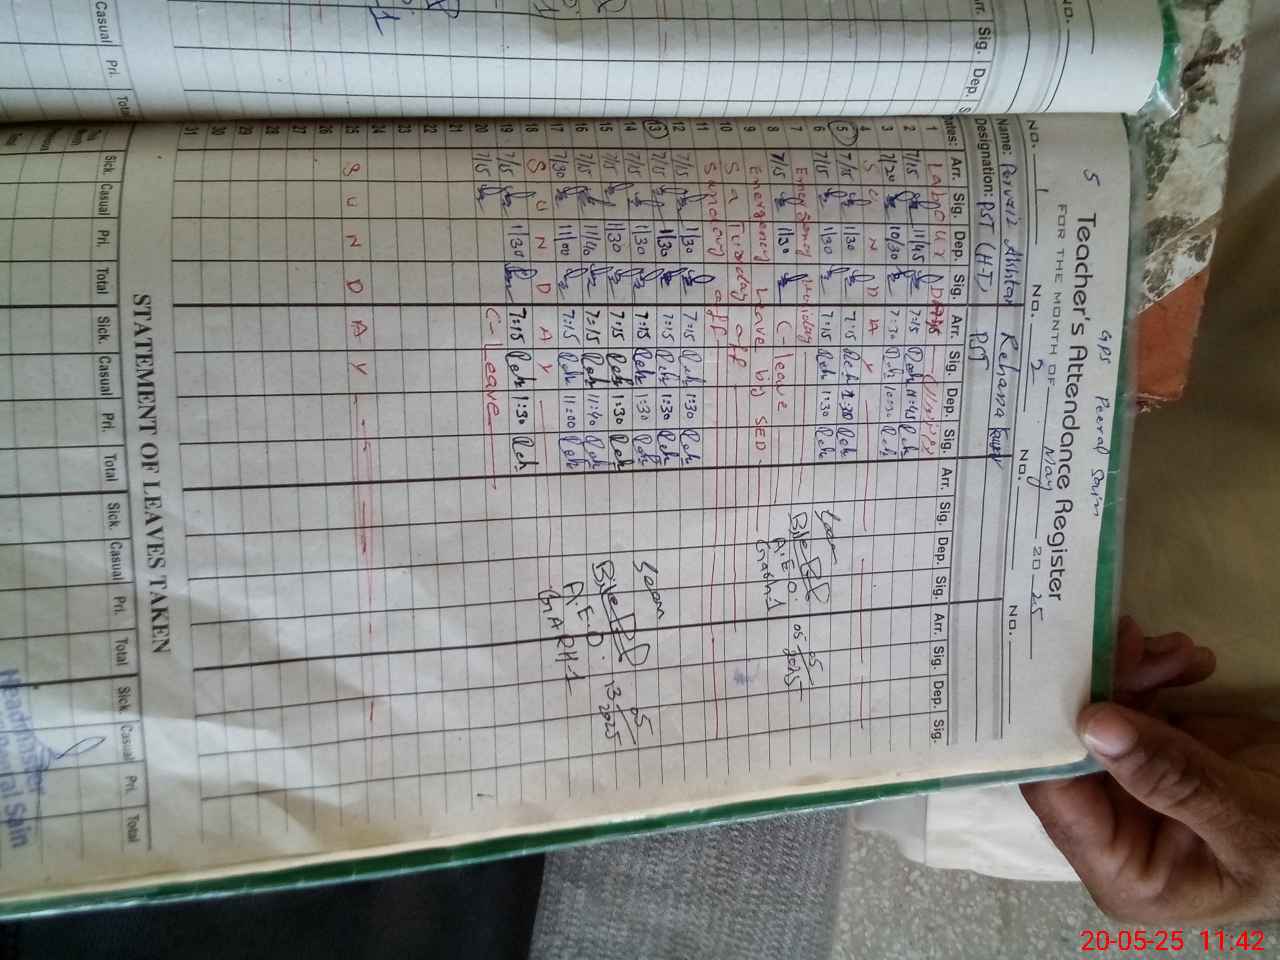 GPS Peeral Sain
5 Teacher's Attendance Register
FOR THE MONTH OF May 2025
NO. 1 NO. 2 NO. NO.
Name: Pervaiz Akhtar Rehana Kausar
Designation: PST (HT) PST
Dates: Arr. Sig. Dep. Sig. Arr. Sig. Dep. Sig. Arr. Sig. Dep. Sig. Arr. Sig. Dep. Sig.
1 Labour Day
2 7/15 11/45 7:15 11:45
3 7/20 10/30 7:30
4 S U N D A Y
5 7/15 1/30 7:15 1:30
6 7/15 1/30 7:15 1:30
7 Emergency Holiday
8 7/15 1/30 C-leave
9 Emergency Leave by SED
10 Saturday off
11 Sunday off
12 7/15 1/30 7:15 1:30
13 7/15 1/30 7:15 1:30
14 7/15 1/30 7:15 1:30
15 7/15 1/30 7:15 1:30
16 7/15 11/40 7:15 11:40
17 7/30 11/00 7:15 11:00
18 S U N D A Y
19 7/15 1/30 7:15 1:30
20 7/15 C-Leave
21
22
23
24
25 S U N D A Y
26
27
28
29
30
31
A.E.O.
05 05 2025
A.E.O.
GARH-1
13 05 2025
STATEMENT OF LEAVES TAKEN
Sick. Casual Pri. Total Sick. Casual Pri. Total Sick. Casual Pri. Total Sick. Casual Pri. Total
Headmaster
Sain
Sig. Dep.
Casual Pri. Total
20-05-25 11:42